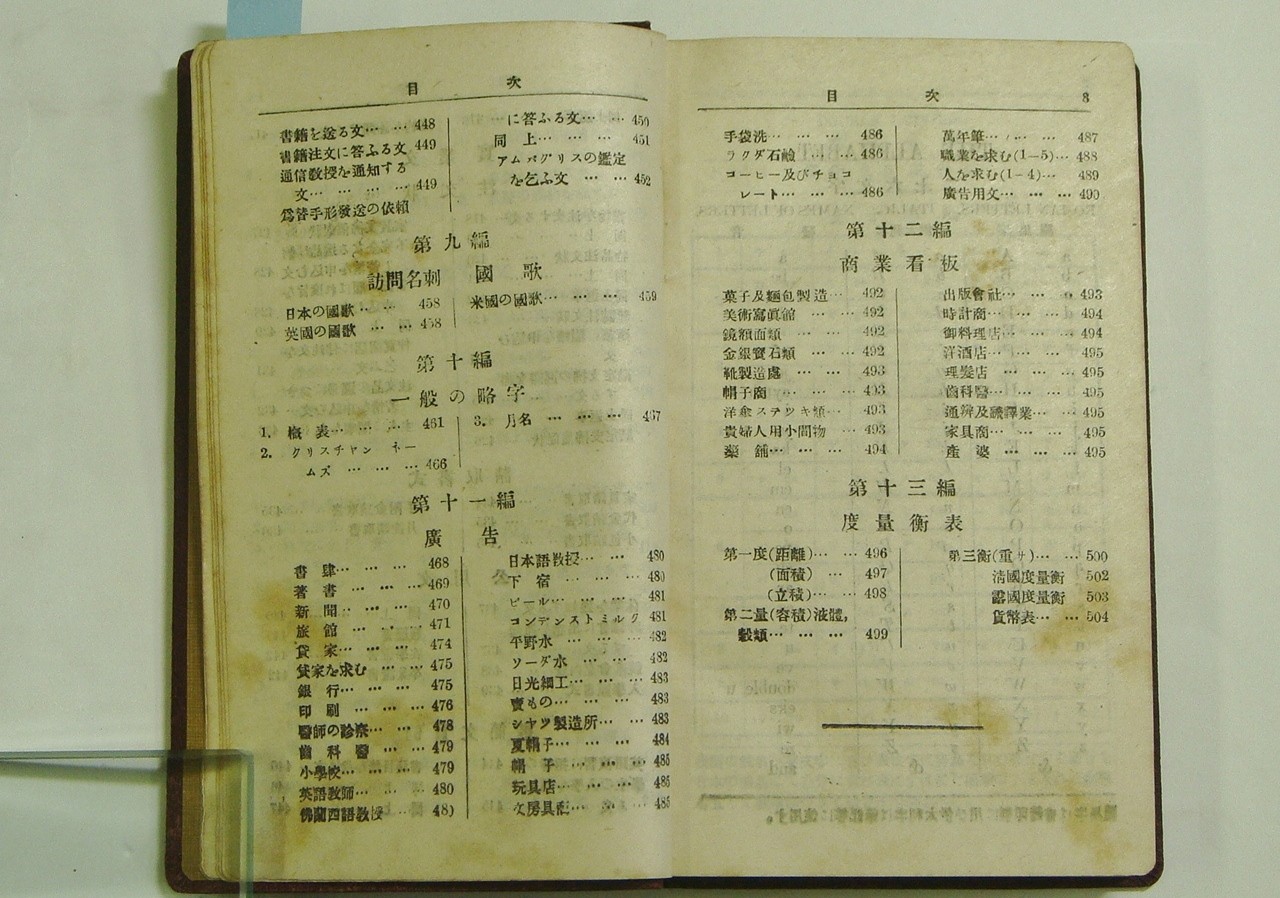 目次
書籍を送る文… … 448
書籍注文に答ふる文 449
通信敎授を通知する
文… … … … 449
爲替手形發送の依賴
に答ふる文… … 450
同 上… … … … 451
アムバグリスの鑑定
を乞ふ文 … … 452
第九編
訪問名刺 國歌
日本の國歌 … … 458
英國の國歌 … … 458
米國の國歌… … … 459
第十編
一般の略字
1. 概 表… … … 461
2. クリスチャン ネー
ムズ … … … 466
3. 月名 … … … 467
第十一編
廣告
書 肆… … … 468
著 書… … … 469
新 聞… … … 470
旅 館… … … 471
貸 家… … … 474
貸家を求む … … 475
銀 行… … … 475
印 刷… … … 476
醫師の診察… … 478
齒 科 醫 … … 479
小學校… … … 479
英語敎師… … … 480
佛蘭西語敎授 48)
日本語敎授… … 480
下 宿 … … … 480
ビール… … … 481
コンデンストミルク 481
平野水 … … … 482
ソーダ水 … … 482
日光細工… … … 483
賣もの… … … 483
シャツ製造所… … 483
夏帽子… … … 484
帽 子… … … 485
玩具店… … … 485
文房具商… … … 485
目次 3
手袋洗… … … 486
ラクダ石鹼 … … 486
コーヒー及びチョコ
レート… … … 486
萬年筆… … … 487
職業を求む(1-5)… 488
人を求む(1-4)… … 489
廣告用文… … … 490
第十二編
商業看板
菓子及麵包製造… 492
美術寫眞館 … … 492
鏡額面類 … … 492
金銀寳石類 … … 492
靴製造處 … … 493
帽子商… … … 493
洋傘ステツキ類… 493
貴婦人用小間物 … 493
藥 舖… … … 494
出版會社… … … 493
時計商… … … 494
御料理店… … … 494
洋酒店… … … 495
理髮店… … … 495
齒科醫… … … 495
通辨及飜譯業… … 495
家具商… … … 495
產 婆 … … … 495
第十三編
度量衡表
第一度(距離)… … 496
(面積) … 497
(立積)… … 498
第二量(容積)液體,
穀類… … … 499
第三衡(重サ)… … 500
淸國度量衡 502
露國度量衡 503
貨幣表… … 504